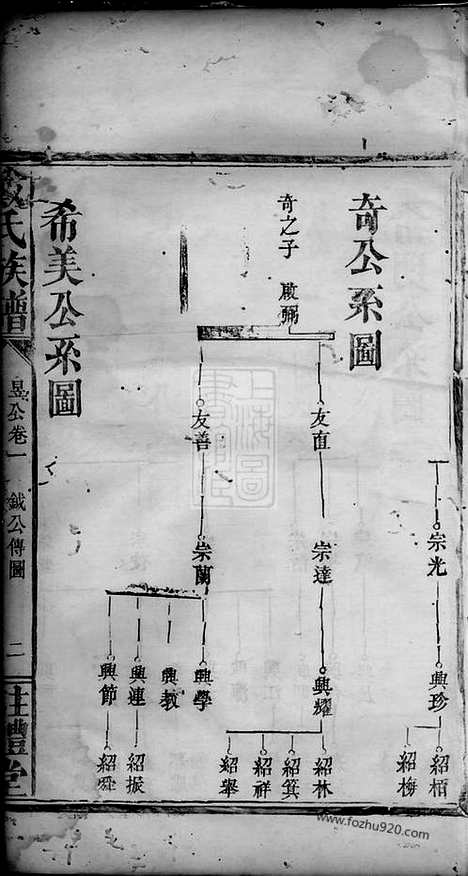 宗光
興珍
紹栢
紹梅
奇公系圖
奇之子 啟弼
友直
宗達
興耀
紹林
紹箕
紹祥
紹舉
友善
崇蘭
興學
興教
興連
紹振
興節
紹舜
希美公系圖
氏族譜
昱公卷一
鉞公傳圖
二
堂
上海圖書館藏
www.fozhu920.com